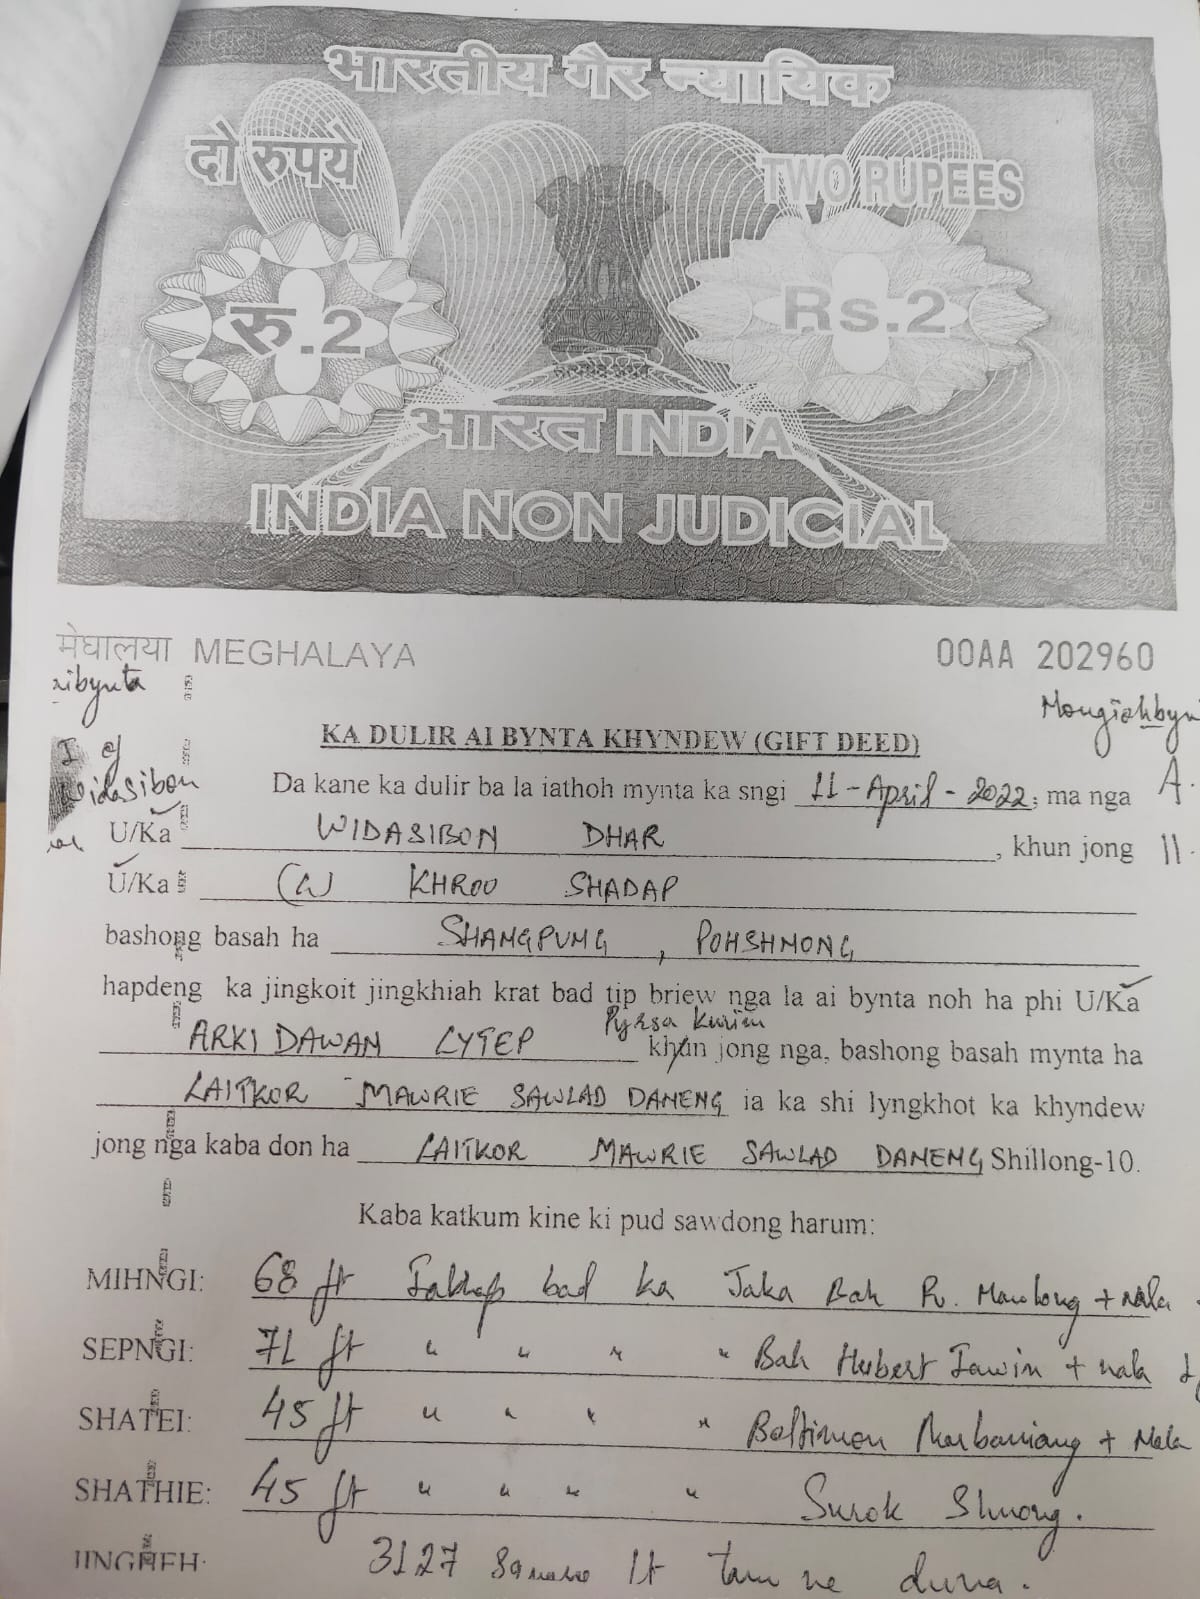 भारतीय गैर न्यायिक
दो रुपये TWO RUPEES
रु.2 Rs.2
भारत INDIA
INDIA NON JUDICIAL
मेघालया MEGHALAYA 00AA 202960
KA DULIR AI BYNTA KHYNDEW (GIFT DEED)
Da kane ka dulir ba la iathoh mynta ka sngi 11-April-2022, ma nga
U/Ka WIDASIBON DHAR, khun jong
U/Ka (L) KHROO SHADAP
bashong basah ha SHANGPUNG, POHSHNONG
hapdeng ka jingkoit jingkhiah krat bad tip briew nga la ai bynta noh ha phi U/Ka
Pyrsa Kurim
ARKI DAWAN LYTEP khun jong nga, bashong basah mynta ha
LAITKOR MAWRIE SAWLAD DANENG ia ka shi lyngkhot ka khyndew
jong nga kaba don ha LAITKOR MAWRIE SAWLAD DANENG Shillong-10.
Kaba katkum kine ki pud sawdong harum:
MIHNGI: 68 ft Iakhap bad ka Jaka Bah + nala
SEPNGI: 71 ft " " " " Bah Hubert Iawin + nala
SHATEI: 45 ft " " " " Marbaniang + Nala
SHATHIE: 45 ft " " " " Surok Shnong.
JINGHEH: 3127 Square ft tam ne duna.